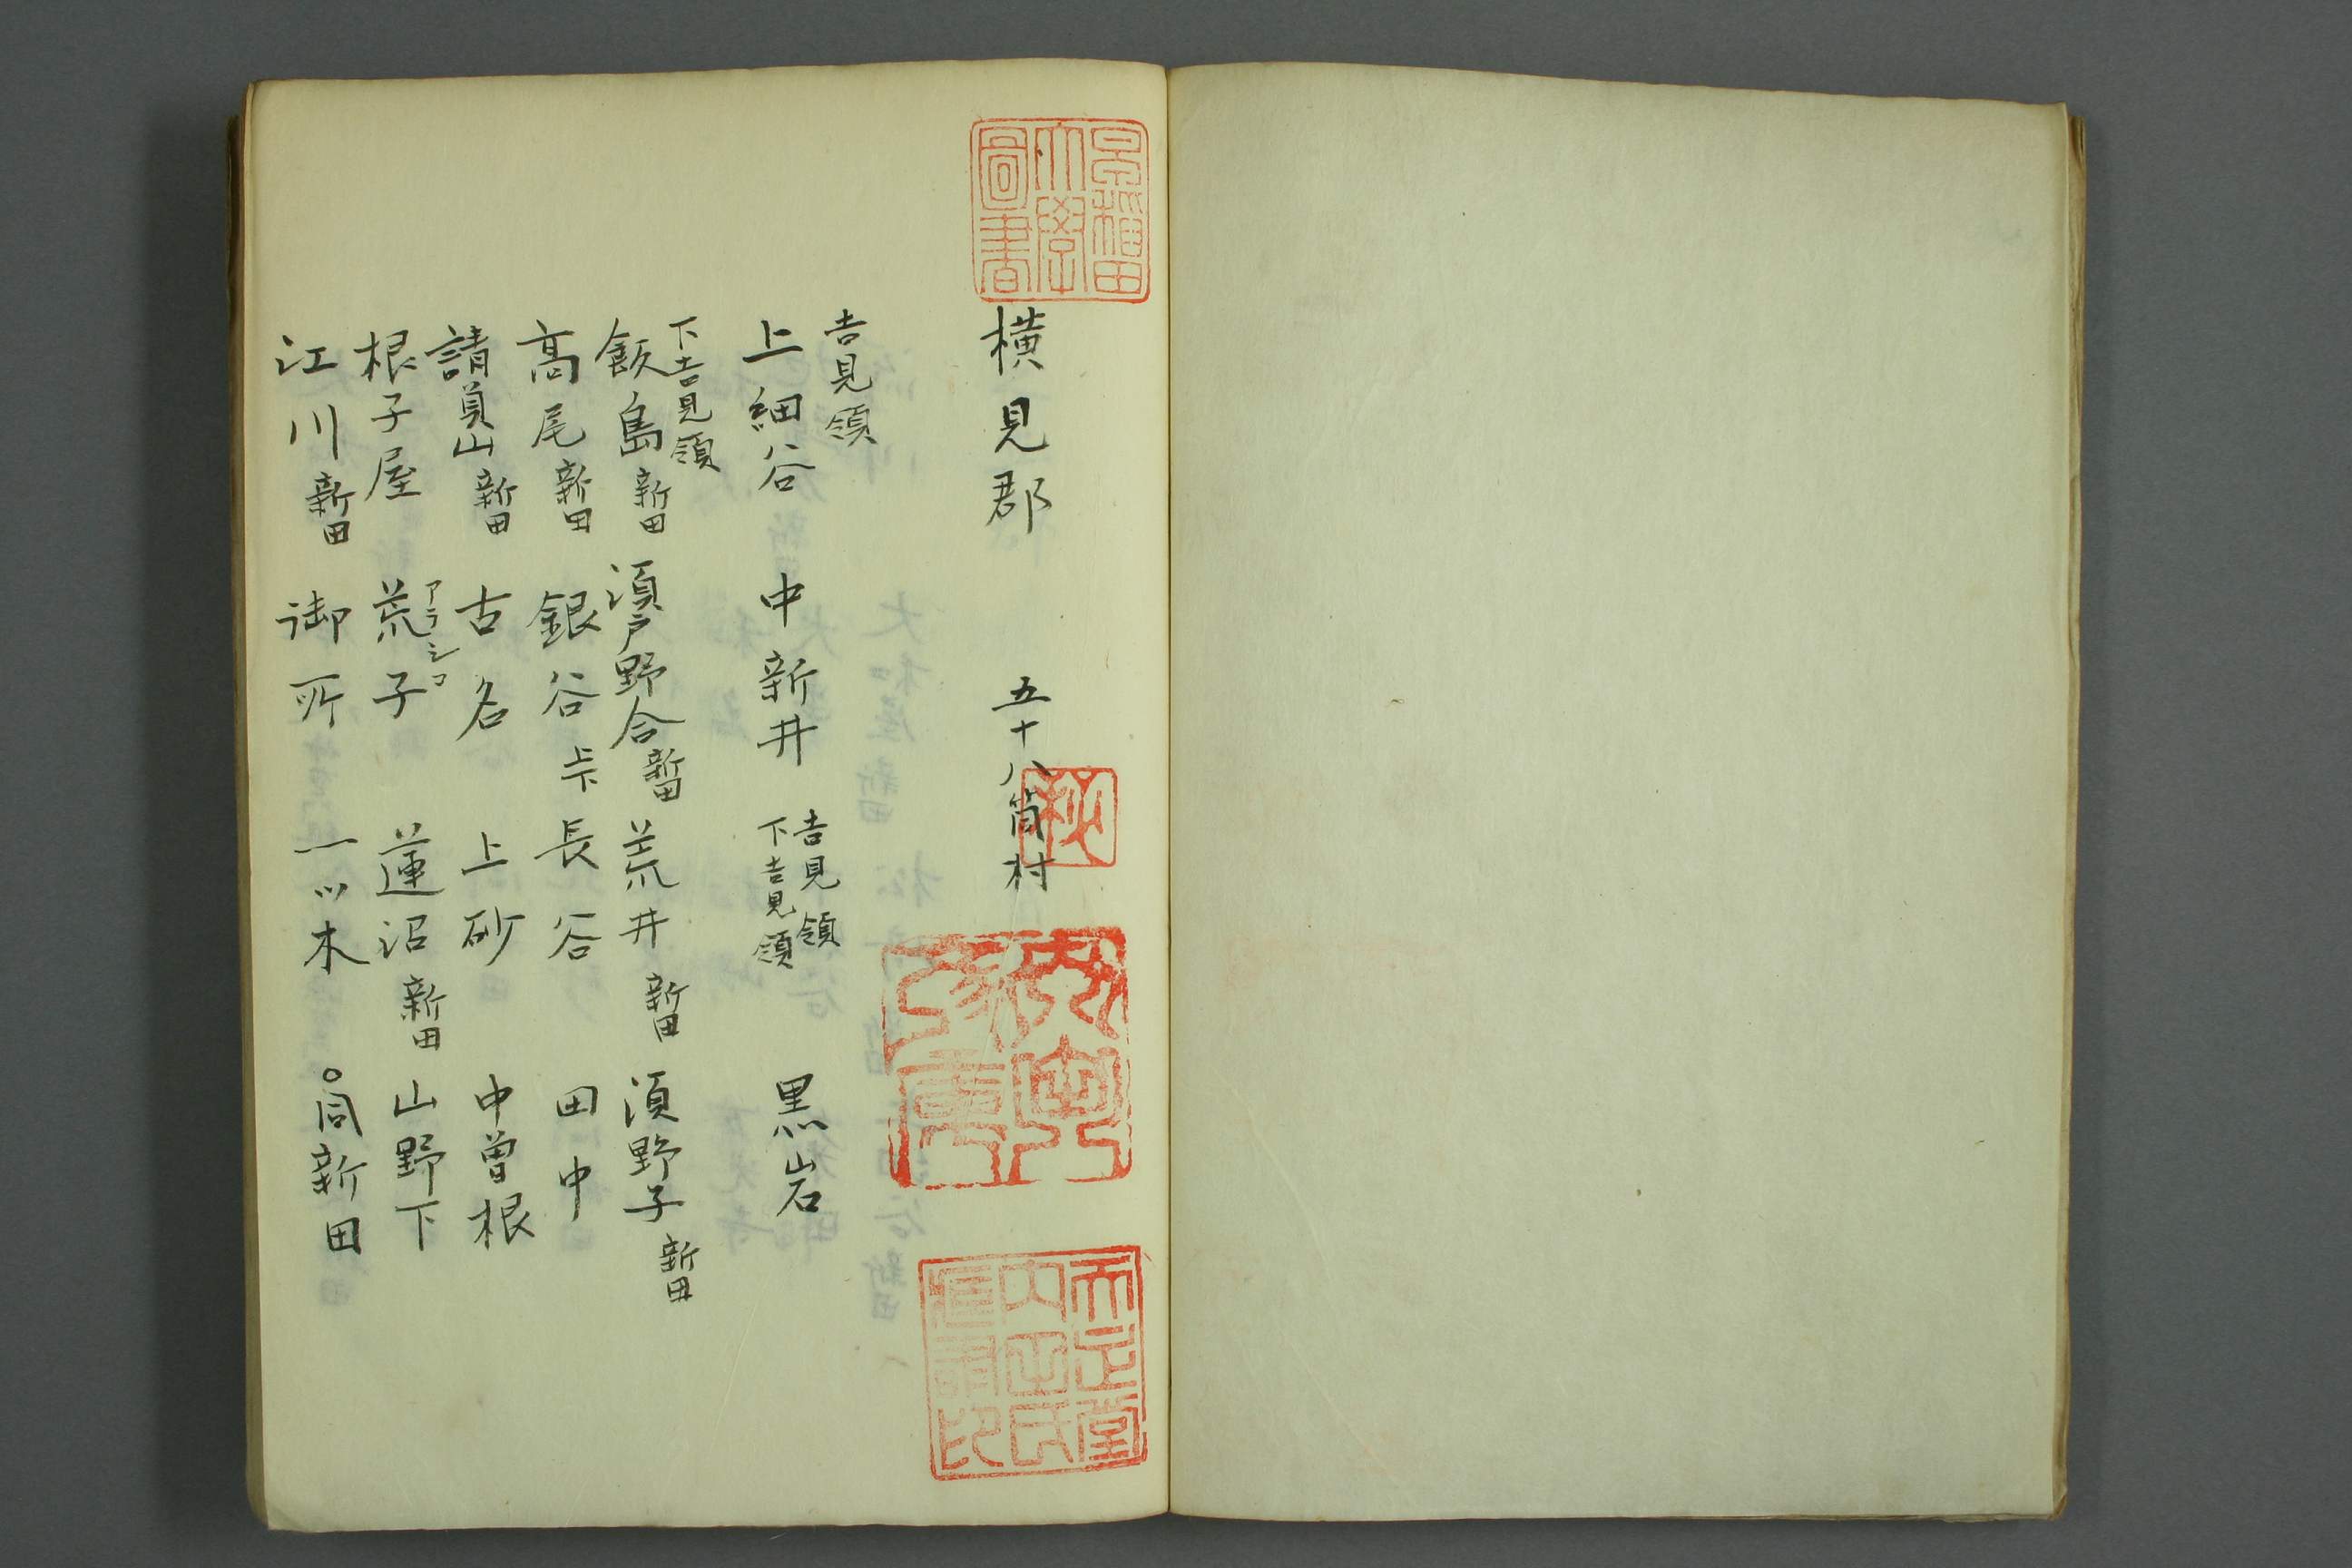 早稲田大學圖書
横見郡 五十八箇村
吉見領
上細谷 中新井 吉見領 下吉見領 黒岩
下吉見領
飯島新田 須戸野谷新田 荒井新田 須野子新田
高尾新田 銀谷 上下 長谷 田中
請負山新田 古名 上砂 中曽根
根子屋 荒子 アラシコ 蓮沼新田 山野下
江川新田 御所 一ツ木 ○同新田